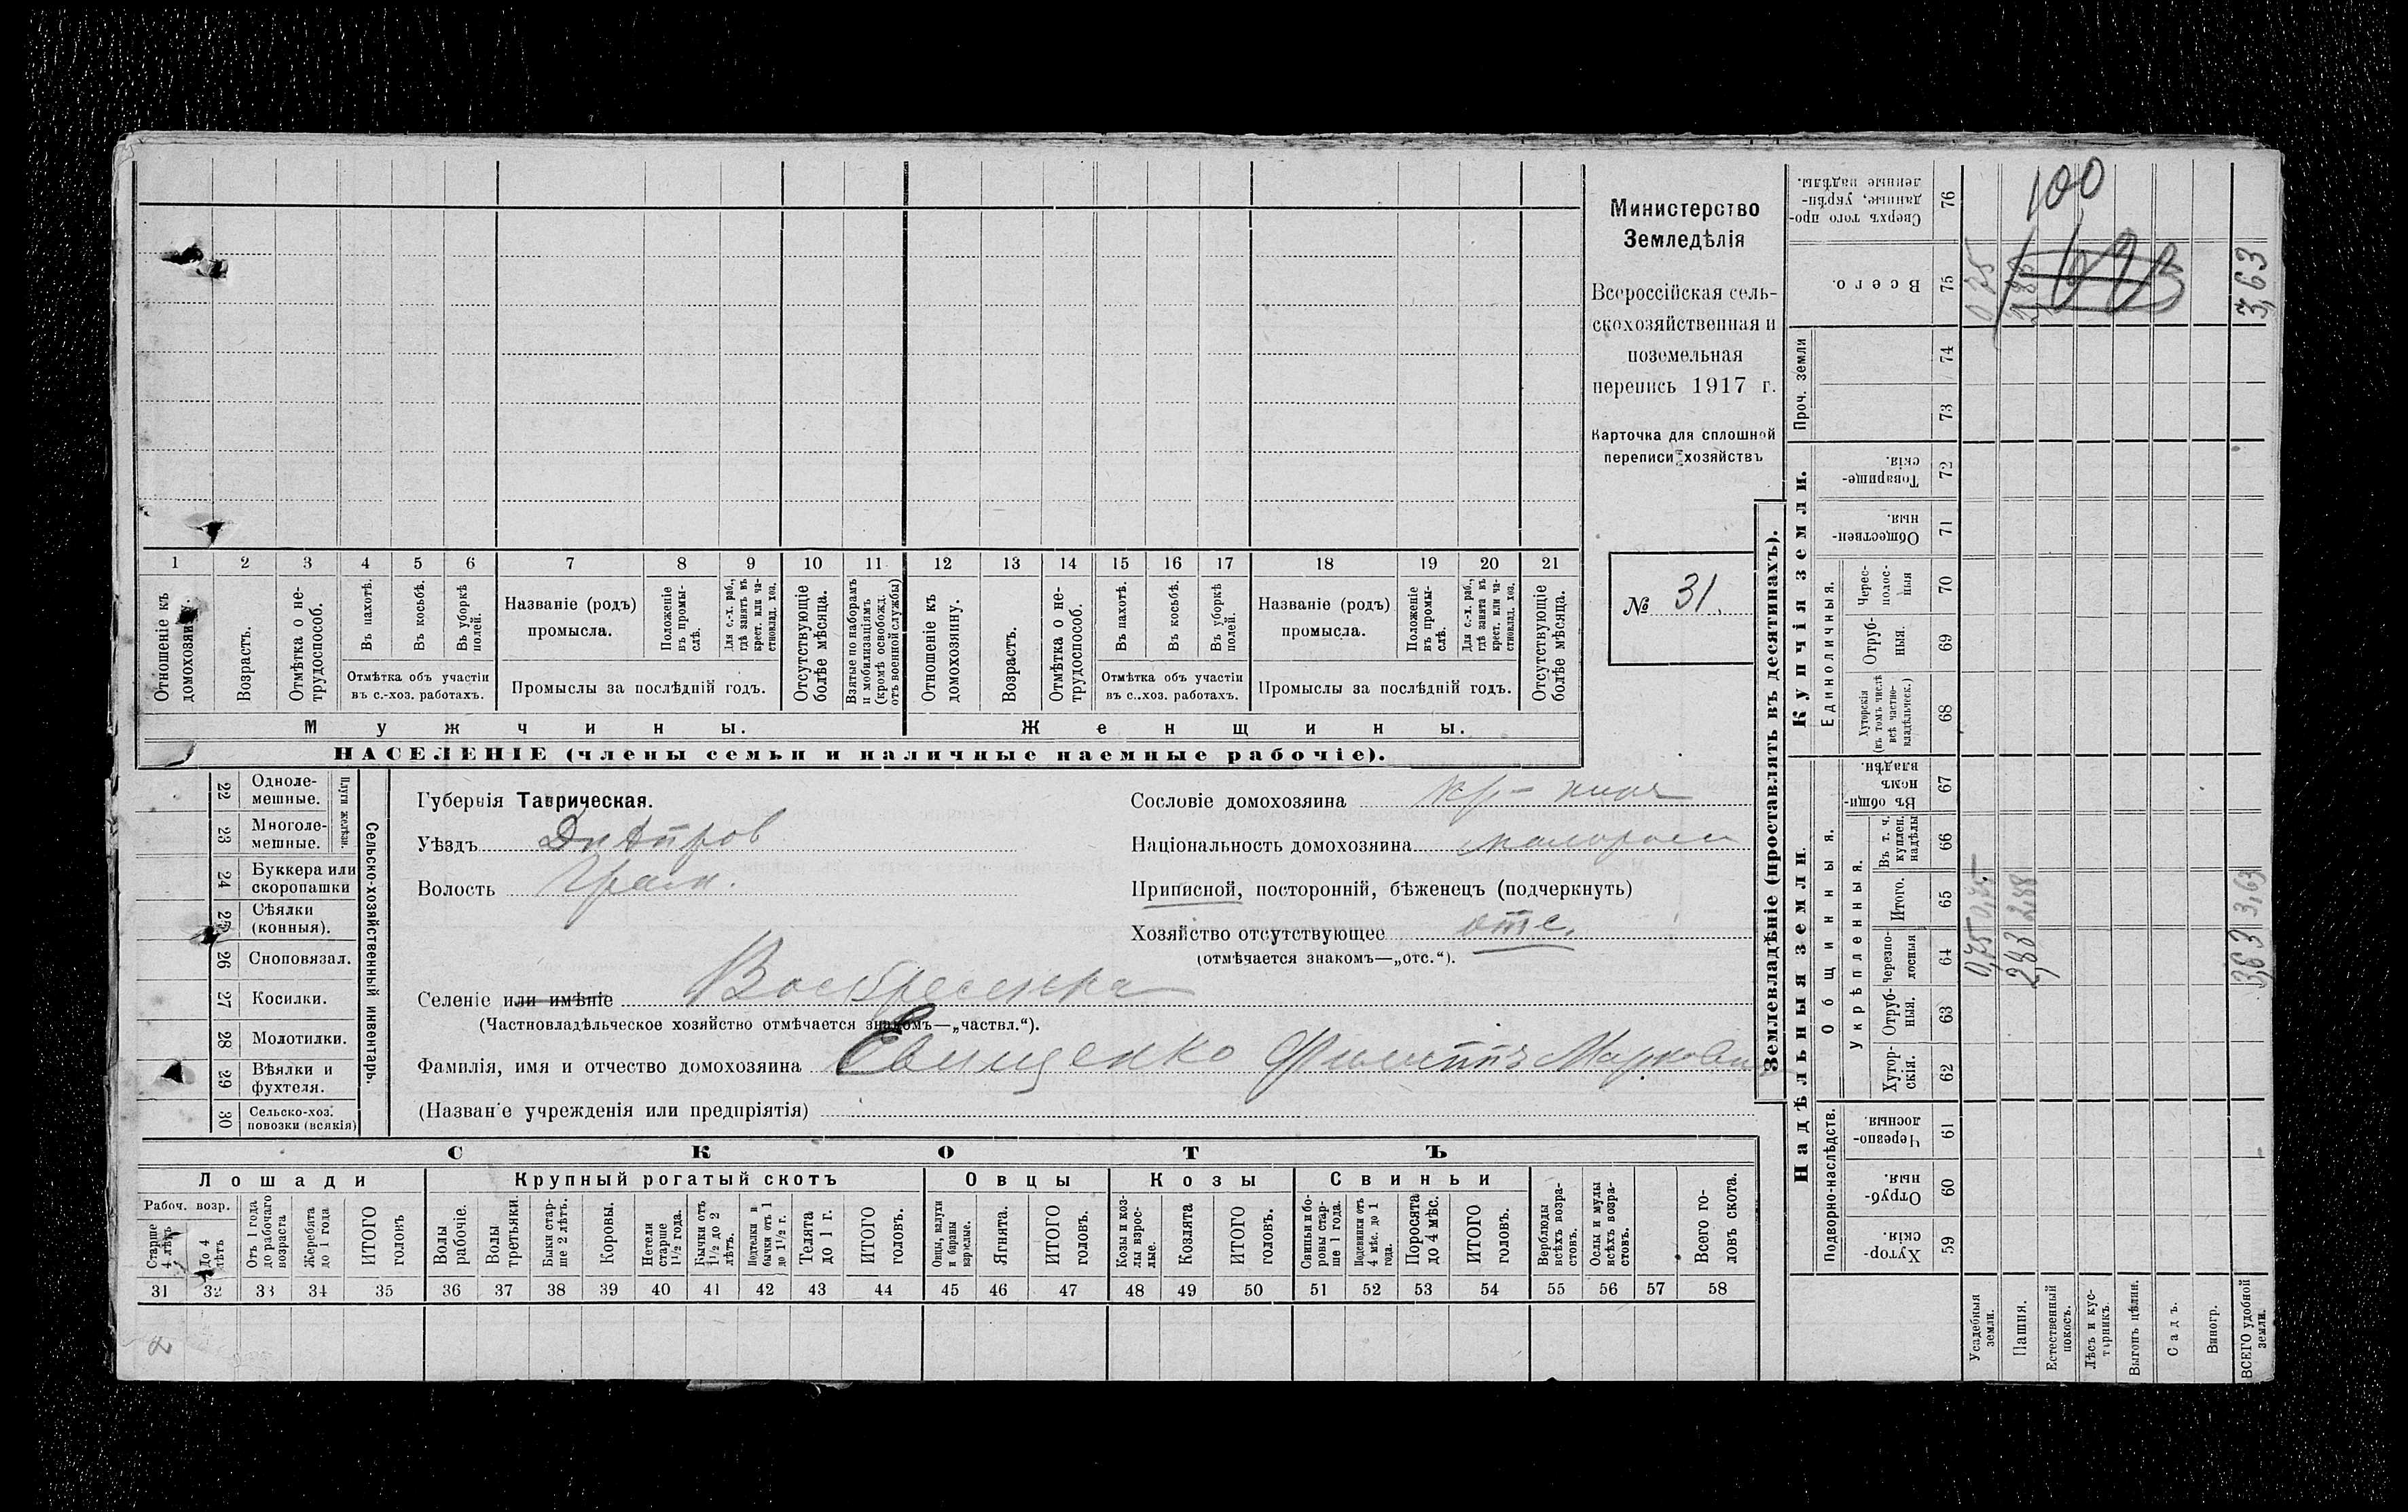 1 2 3 4 5 6 7 8 9 10 11 12 13 14 15 16 17 18 19 20 21
Отношеніе къ домохозяину.
Возрастъ.
Отмѣтка о не-трудоспособ.
Въ пахотѣ.
Въ косьбѣ.
Въ уборкѣ полей.
Отмѣтка объ участіи
въ с.-хоз. работахъ.
Названіе (родъ)
промысла.
Положеніе въ промы-слѣ.
Для с.-х. раб., гдѣ занятъ въ крест. или ча-стновлад. хоз.
Промыслы за послѣдній годъ.
Отсутствующіе болѣе мѣсяца.
Взятые по наборамъ и мобилизаціямъ (кромѣ освобожд. отъ военной службы)
Отношеніе къ домохозяину.
Возрастъ.
Отмѣтка о не-трудоспособ.
Въ пахотѣ.
Въ косьбѣ.
Въ уборкѣ полей.
Отмѣтка объ участіи
въ с..хоз. работахъ.
Названіе (родъ)
промысла.
Положеніе въ промы-слѣ.
Для с.-х. раб., гдѣ занята въ крест. или ча-стновлад. хоз.
Промыслы за послѣдній годъ.
Отсутствующіе болѣе мѣсяца.
Мужчины. Женщины.
НАСЕЛЕНІЕ (члены семьи и наличные наемные рабочіе).
Министерство
Земледѣлія
Всероссійская сель-
скохозяйственная и
поземельная
перепись 1917 г.
Карточка для сплошной
переписи хозяйствъ
№ 31.
22 Одноле-мешные.
23 Многоле-мешные.
Плуги желѣзн.
24 Буккера или скоропашки
25 Сѣялки (конныя).
26 Сноповязал.
27 Косилки.
28 Молотилки.
29 Вѣялки и фухтеля.
30 Сельско-хоз. повозки (всякія)
Сельско-хозяйственный инвентарь.
Губернія Таврическая.
Уѣздъ Днѣпров
Волость
Селеніе или имѣніе Воскресенка
(Частновладѣльческое хозяйство отмѣчается знакомъ—„частвл.“).
Фамилія, имя и отчество домохозяина Евищенко Филиппъ Маркович
(Названіе учрежденія или предпріятія)
Сословіе домохозяина кр-нинъ
Національность домохозяина малоросс
Приписной, посторонній, бѣженецъ (подчеркнуть)
Хозяйство отсутствующее отс.
(отмѣчается знакомъ—„отс.“).
СКОТЪ
Лошади Крупный рогатый скотъ Овцы Козы Свиньи
Рабоч. возр.
Старше 4 лѣтъ
До 4 лѣтъ
Отъ 1 года до рабочаго возраста
Жеребята до 1 года
ИТОГО головъ
Волы рабочіе.
Волы третьяки.
Быки стар-ше 2 лѣтъ.
Коровы.
Нетели старше 1½ года.
Бычки отъ 1½ до 2 лѣтъ.
Подтелки и бычки отъ 1 до 1½ г.
Телята до 1 г.
ИТОГО головъ.
Овцы, валухи и бараны взрослые.
Ягнята.
ИТОГО головъ.
Козы и коз-лы взрос-лые.
Козлята
ИТОГО головъ.
Свиньи и бо-ровы стар-ше 1 года.
Подсвинки отъ 4 мѣс. до 1 года.
Поросята до 4 мѣс.
ИТОГО головъ.
Верблюды всѣхъ возра-стовъ.
Ослы и мулы всѣхъ возра-стовъ.
Всего го-ловъ скота.
31 32 33 34 35 36 37 38 39 40 41 42 43 44 45 46 47 48 49 50 51 52 53 54 55 56 57 58
Землевладѣніе (проставлять въ десятинахъ).
Надѣльныя земли.
Купчія земли.
Проч. земли
Подворно-наслѣдств.
Общинныя.
Укрѣпленныя.
Единоличныя.
Сверхъ того про-данные, укрѣп-ленные надѣлы. 76
Всего. 75
74
73
Товарище-скія. 72
Обществен-ныя. 71
Черес-полос-ныя 70
Отруб-ныя. 69
Хуторскія (въ томъ числѣ всѣ частно-владѣльческ.) 68
Въ общин-номъ владѣн. 67
Въ т. ч. куплен. надѣлы 66
Итого. 65
Черезпо-лосныя 64
Отруб-ныя. 63
Хутор-скія. 62
Черезпо-лосныя. 61
Отруб-ныя. 60
Хутор-скія. 59
Усадебныя земли.
Пашня.
Естественный покосъ.
Лѣсъ и кус-тарникъ.
Выгонъ цѣлин.
Садъ.
Виногр.
ВСЕГО удобной земли.
100
0,75 2,88 3,63
0,75 2,88 3,63
0,75 2,88 3,63